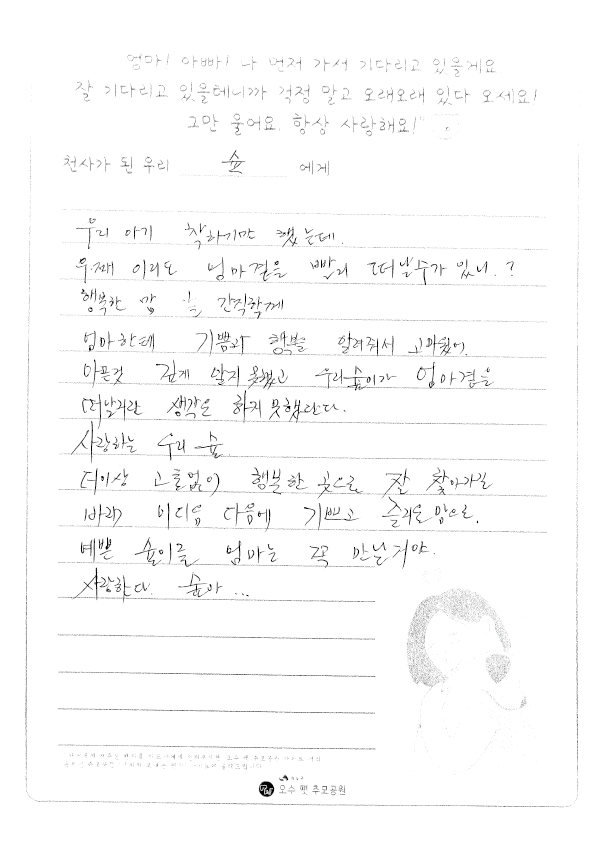 엄마! 아빠! 나 먼저 가서 기다리고 있을게요
잘 기다리고 있을테니까 걱정 말고 오래오래 있다 오세요!
그만 울어요. 항상 사랑해요!"
천사가 된 우리 숲 에게
우리 아기 착하기만 했는데.
우째 이리도 엄마곁을 빨리 떠날수가 있니.?
행복한 맘 을 간직할께
엄마한테 기쁨과 행복을 알려줘서 고마웠어.
아픈것 깊게 알지 못했고 우리숲이가 엄마곁을
떠날거란 생각은 하지 못했단다.
사랑하는 우리 숲
더이상 고통없이 행복한 곳으로 잘 찾아가길
바래 이다음 다음에 기쁘고 즐거운 맘으로.
예쁜 숲이를 엄마는 꼭 만날거야.
사랑한다. 숲아 ...
오수 펫 추모공원